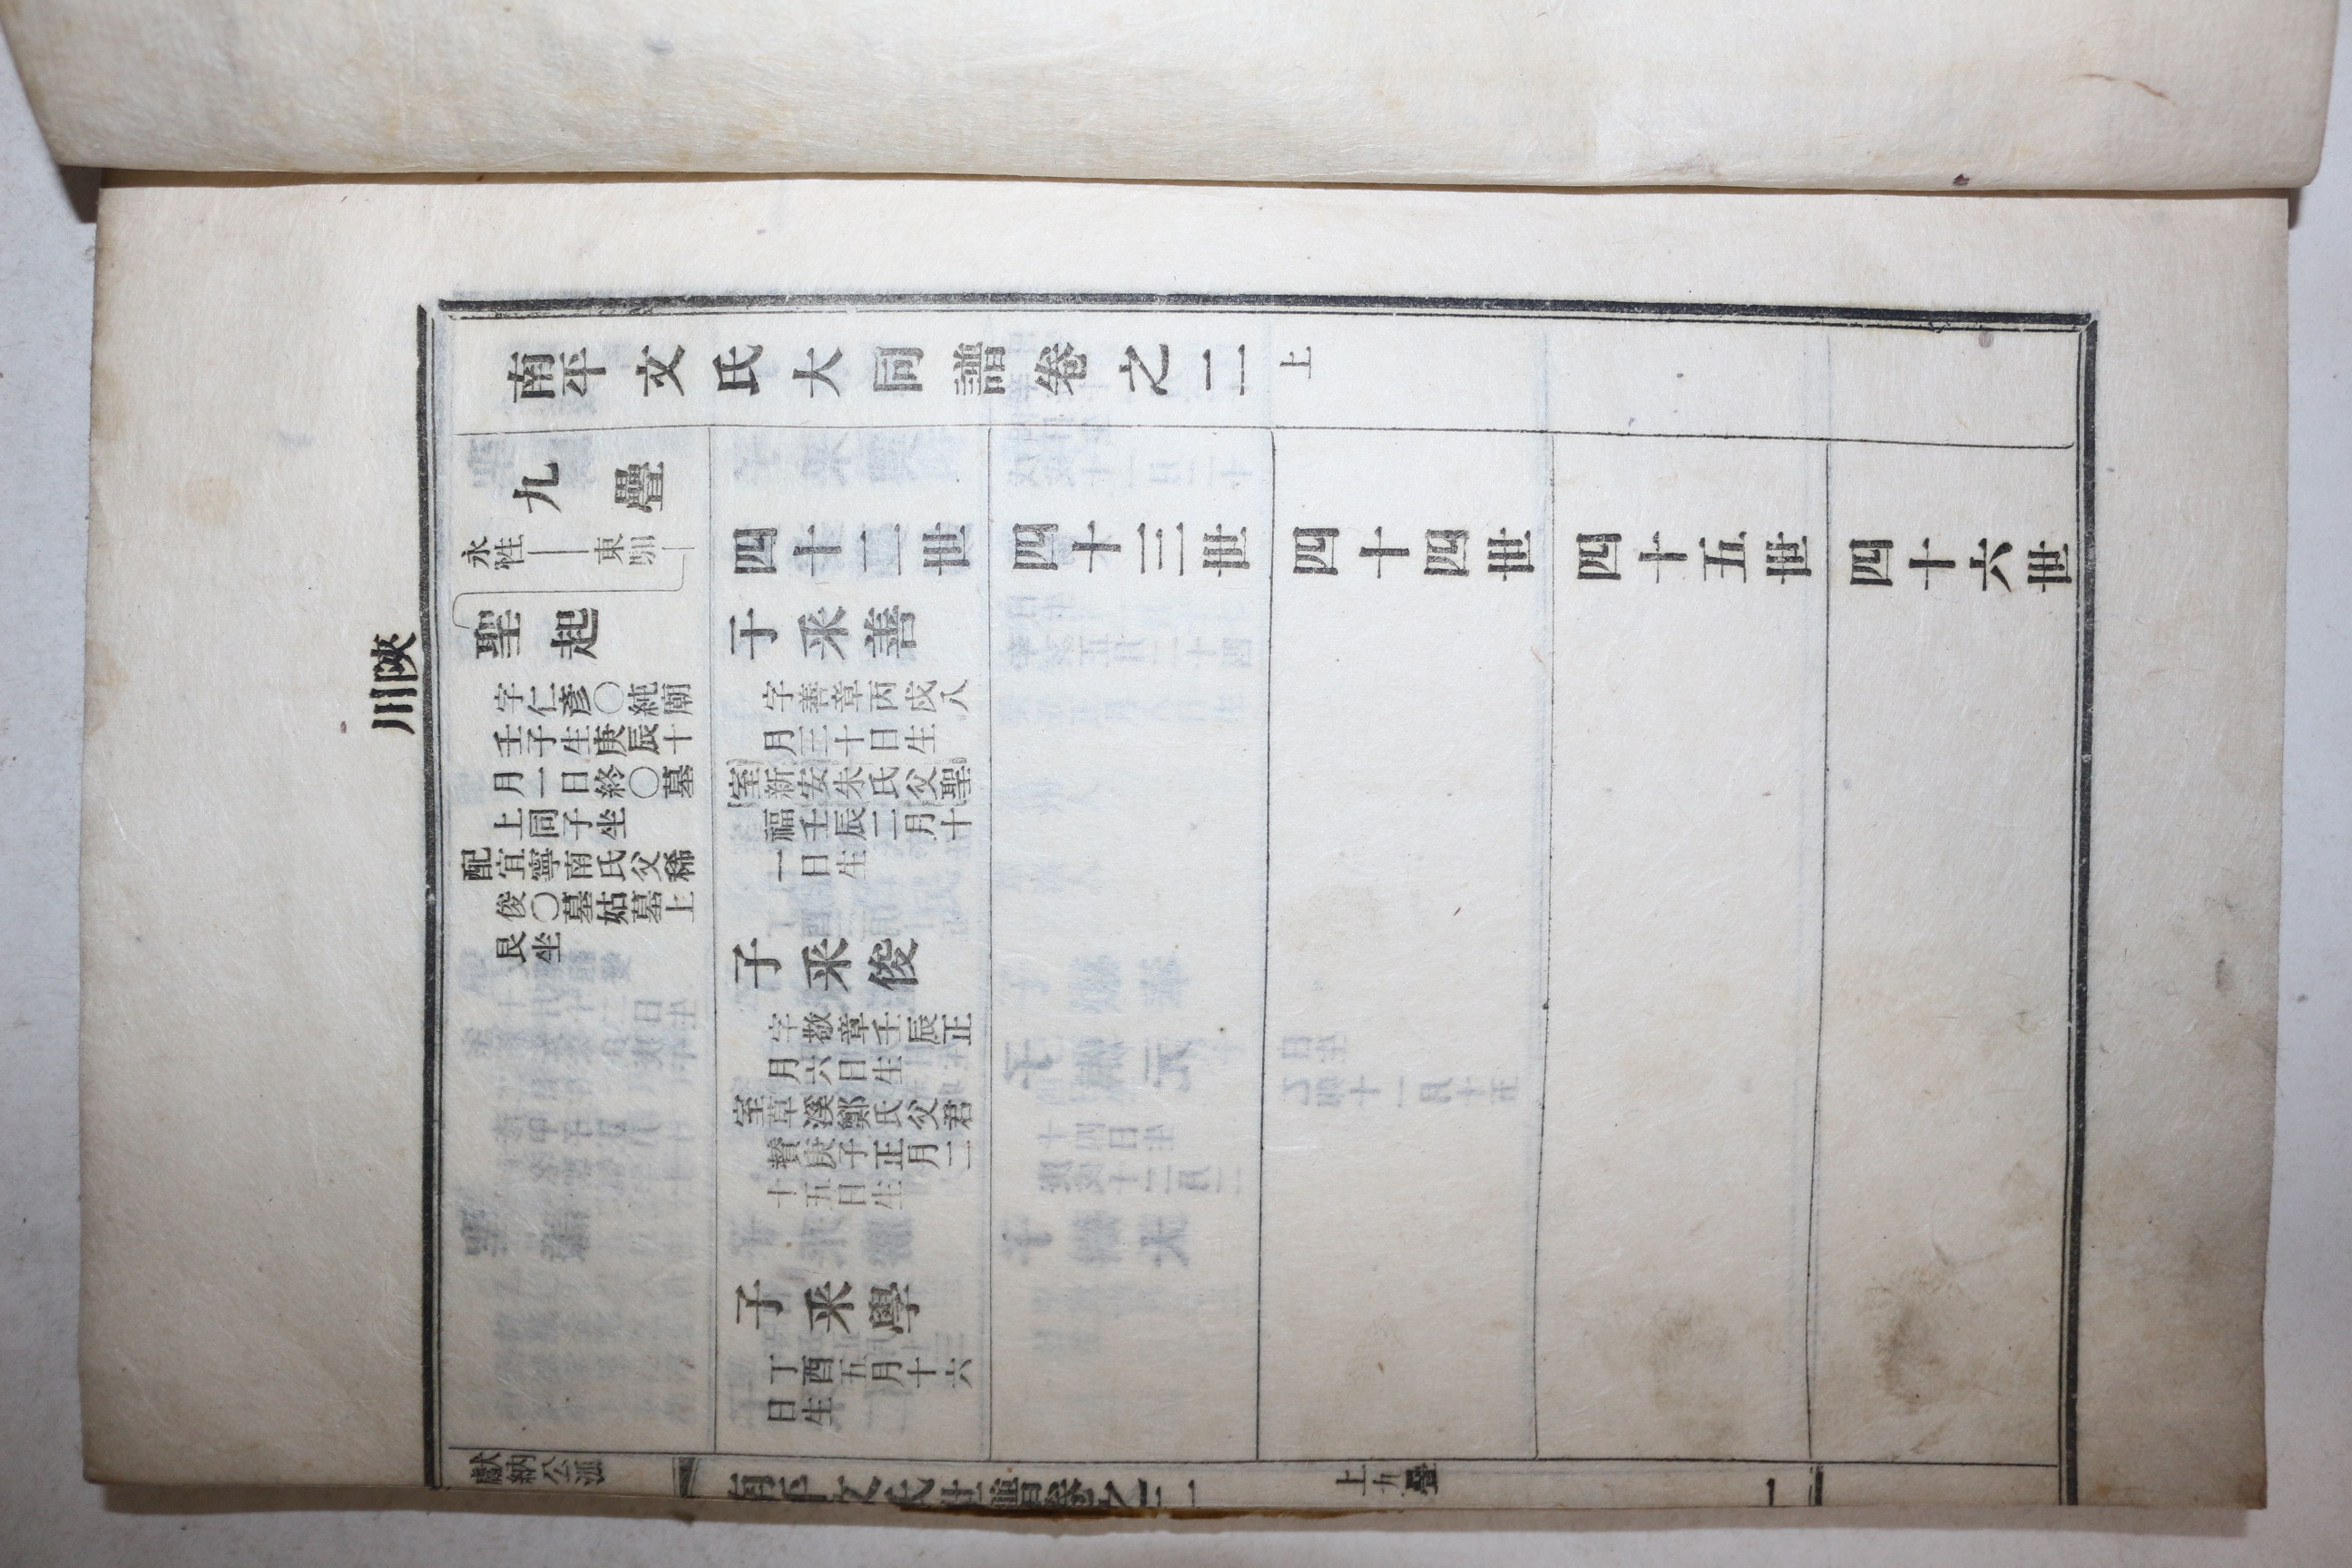 南平文氏大同譜卷之二 上
九疊
永性 東馹
聖起
字仁彥〇純廟
壬子生庚辰十
月一日終〇墓
上同子坐
配宜寧南氏父稀
俊〇墓姑墓上
艮坐
四十二世
子采善
字善章丙戌八
月三十日生
室新安朱氏父聖
福壬辰二月十
一日生
子采俊
字敬章壬辰正
月六日生
室草溪鄭氏父君
贊庚子正月二
十五日生
子采學
丁酉五月十六
日生
四十三世
四十四世
四十五世
四十六世
陜川
獻納公派
南平文氏大同譜卷之二
上九疊
一